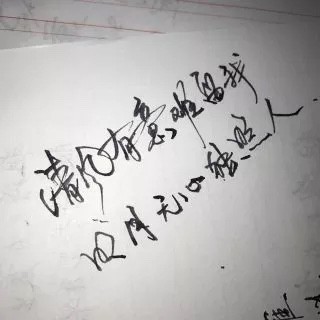 清风有意难留我
明月无心自照人